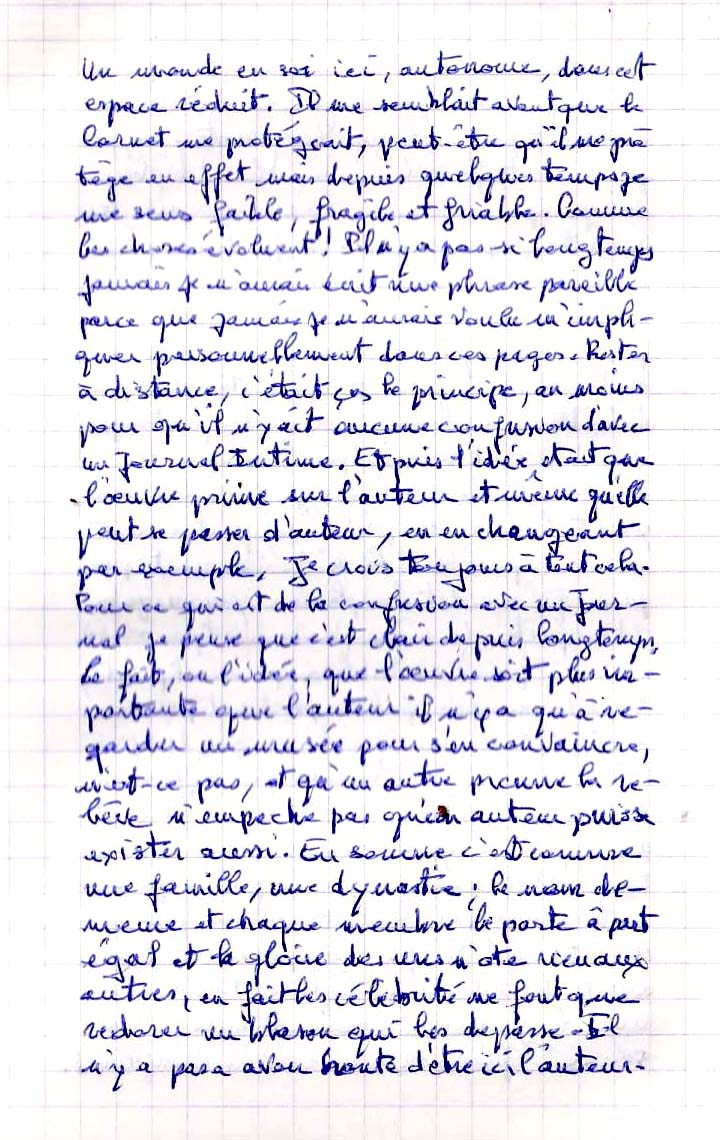 Un monde en soi ici, autonome, dans cet
espace réduit. Il me semblait avant que le
Carnet me protégeait, peut-être qu'il me pro
tège en effet mais depuis quelques temps je
me sens faible, fragile et friable. Comme
les choses évoluent! Il n'y a pas si longtemps
jamais je n'aurais écrit une phrase pareille
parce que jamais je n'aurais voulu m'impli-
quer personnellement dans ces pages. Rester
à distance, c'était ça le principe, au moins
pour qu'il n'y ait aucune confusion d'avec
un Journal Intime. Et puis l'idée était que
l'œuvre prime sur l'auteur et même qu'elle
peut se passer d'auteur, en en changeant
par exemple, Je crois toujours à tout cela.
Pour ce qui est de la confusion avec un jour-
nal je pense que c'est clair depuis longtemps,
le fait, ou l'idée, que l'œuvre soit plus im-
portante que l'auteur il n'y a qu'à re-
garder un musée pour s'en convaincre,
n'est-ce pas, et qu'un autre prenne la re-
lève n'empêche pas qu'un auteur puisse
exister aussi. En somme c'est comme
une famille, une dynastie; le nom de-
meure et chaque membre le porte à part
égal et la gloire des uns n'ote rien aux
autres, en fait les célébrité ne font que
redorer un blason qui les dépasse. Il
n'y a pas a avoir honte d'être ici l'auteur.